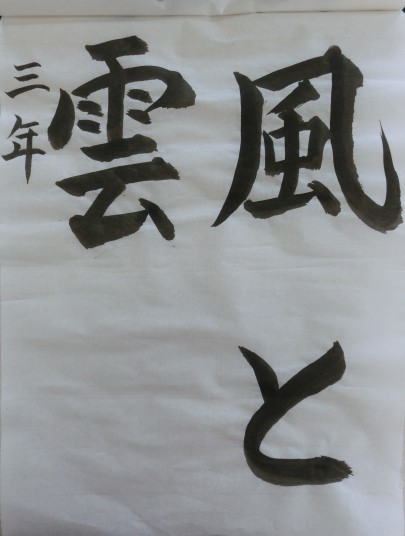 風と
雲
三年